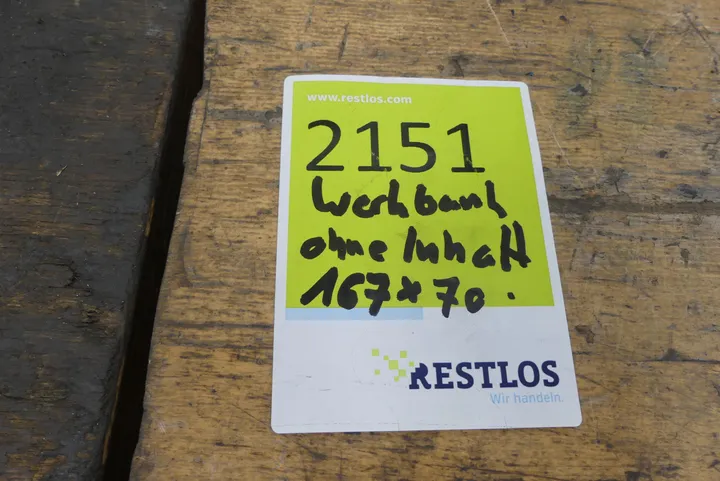 www.restlos.com
2151
Werkbank
ohne Inhalt
167x70.
RESTLOS
Wir handeln.